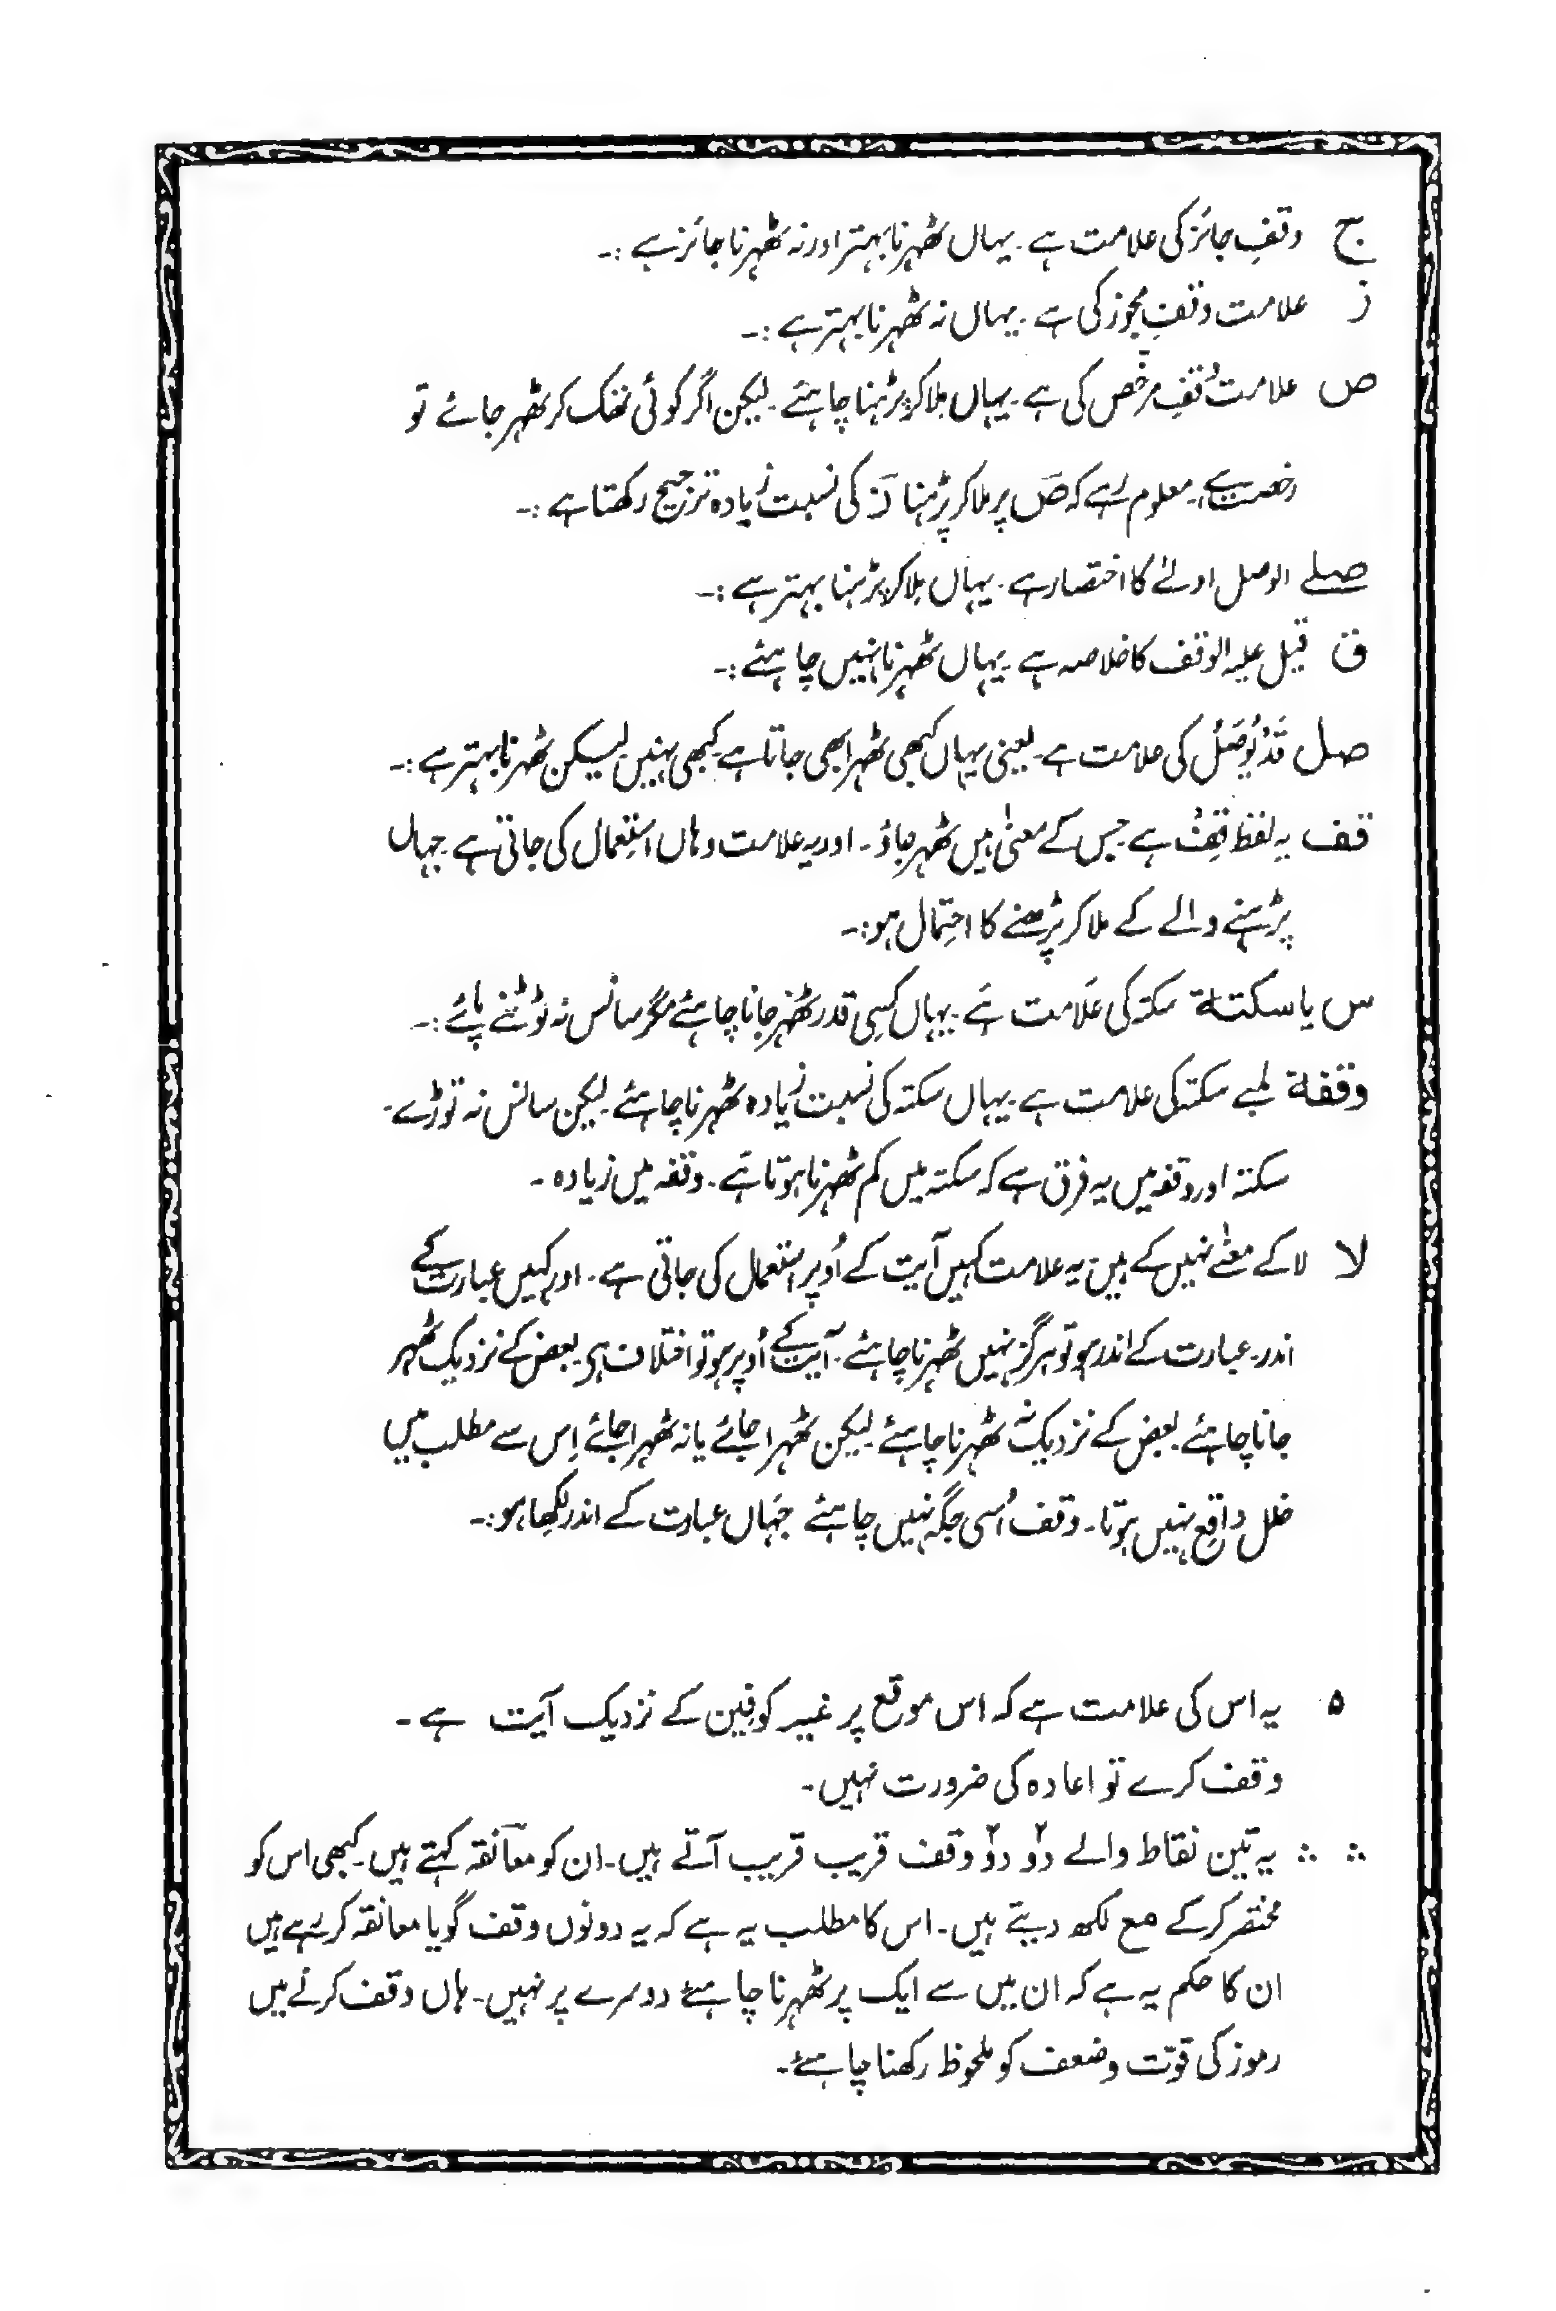 ج وقفِ جائز کی علامت ہے۔ یہاں ٹھہرنا بہتر اور نہ ٹھہرنا جائز ہے :۔
ز علامت وقفِ مجوز کی ہے۔ یہاں نہ ٹھہرنا بہتر ہے :۔
ص علامت وقفِ مرخّص کی ہے۔ یہاں ملا کر پڑہنا چاہئے۔ لیکن اگر کوئی تھک کر ٹھہر جائے تو
رخصت ہے۔ معلوم رہے کہ صؔ پر ملا کر پڑہنا زؔ کی نسبت زیادہ ترجیح رکھتا ہے :۔
صلے الوصل اولےٰ کا اختصار ہے۔ یہاں ملا کر پڑہنا بہتر ہے :۔
ق قیل علیہ الوقف کا خلاصہ ہے۔ یہاں ٹھہرنا نہیں چاہئے :۔
صل قَدْ یُوصَلُ کی علامت ہے۔ یعنی یہاں کبھی ٹھہرا بھی جاتا ہے کبھی نہیں۔ لیکن ٹھہرنا بہتر ہے :۔
قف یہ لفظ قِفْ ہے جس کے معنیٰ ہیں ٹھہر جاؤ۔ اور یہ علامت وہاں استِعمال کی جاتی ہے۔ جہاں
پڑہنے والے کے ملا کر پڑھنے کا احتِمال ہو :۔
س یا سکتة سکتہ کی عَلامت ہَے۔ یہاں کسِی قدر ٹھہر جانا چاہئے مگر سانس نہ ٹوٹنے پائے :۔
وقفة لمبے سکتہ کی علامت ہے۔ یہاں سکتہ کی نسبت زیادہ ٹھہرنا چاہئے۔ لیکن سانس نہ توڑے۔
سکتہ اور وقفہ میں یہ فرق ہے کہ سکتہ میں کم ٹھہرنا ہوتا ہَے۔ وقفہ میں زیادہ۔
لا لا کے معنےٰ نہیں کے ہیں۔ یہ علامت کہیں آیت کے اُوپر استعمال کی جاتی ہے۔ اور کہیں عبارت کے
اندر۔ عبارت کے اندر ہو تو ہرگز نہیں ٹھہرنا چاہئے۔ آیت کے اُوپر ہو تو اختلاف ہی۔ بعض کے نزدیک ٹھہر
جانا چاہئے۔ بعض کے نزدیک نہ ٹھہرنا چاہئے۔ لیکن ٹھہرا جائے یا نہ ٹھہرا جائے اِس سے مطلب میں
خلل واقِع نہیں ہوتا۔ وقف اُسی جگہ نہیں چاہئے جَہاں عبارت کے اندر لکھا ہو :۔
۵ یہ اس کی علامت ہے کہ اس موقع پر غیر کوفِین کے نزدیک آیت ہے۔
وقف کرے تو اعادہ کی ضرورت نہیں۔
∴ ∴ یہ تین نقاط والے دو۲ دو۲ وقف قریب قریب آتے ہیں۔ ان کو معانقہ کہتے ہیں۔ کبھی اس کو
مختصر کر کے مع لکھ دیتے ہیں۔ اس کا مطلب یہ ہے کہ یہ دونوں وقف گویا معانقہ کر رہے ہیں
ان کا حکم یہ ہے کہ ان میں سے ایک پر ٹھہرنا چاہئے دوسرے پر نہیں۔ ہاں وقف کرنے میں
رموز کی قوّت وضعف کو ملحوظ رکھنا چاہئے۔